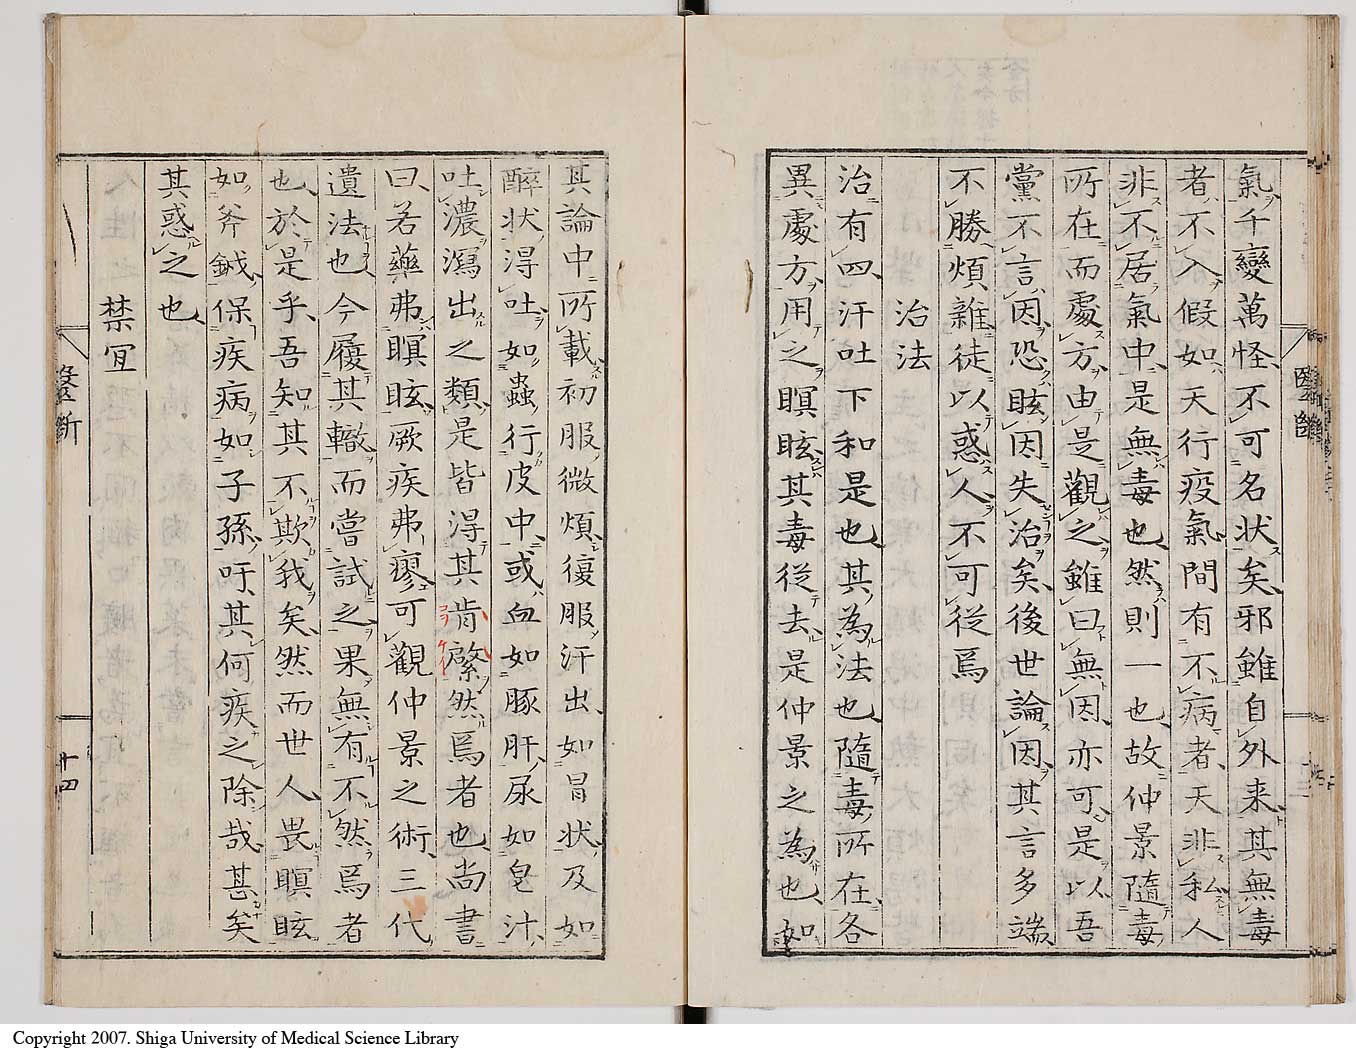 氣千變萬怪不可名狀矣邪雖自外来其無毒
者不入假如天行疫氣間有不病者天非私人
非不居氣中是無毒也然則一也故仲景隨毒
所在而處方由是觀之雖曰無因亦可是以吾
黨不言因恐眩因失治矣後世論因其言多端
不勝煩雜徒以惑人不可從焉
治法
治有四汗吐下和是也其為法也隨毒所在各
異處方用之瞑眩其毒從去是仲景之為也如
其論中所載初服微煩復服汗出如冒狀及如
醉狀淂吐如蟲行皮中或血如豚肝尿如皂汁
吐濃瀉出之類是皆淂其肯綮然焉者也尚書
曰若藥弗瞑眩厥疾弗瘳可觀仲景之術三代
遺法也今履其轍而嘗試之果無有不然焉者
也於是乎吾知其不欺我矣然而世人畏瞑眩
如斧鉞保疾病如子孫吁其何疾之除哉甚矣
其惑之也
禁宜
醫斷
十四
Copyright 2007. Shiga University of Medical Science Library